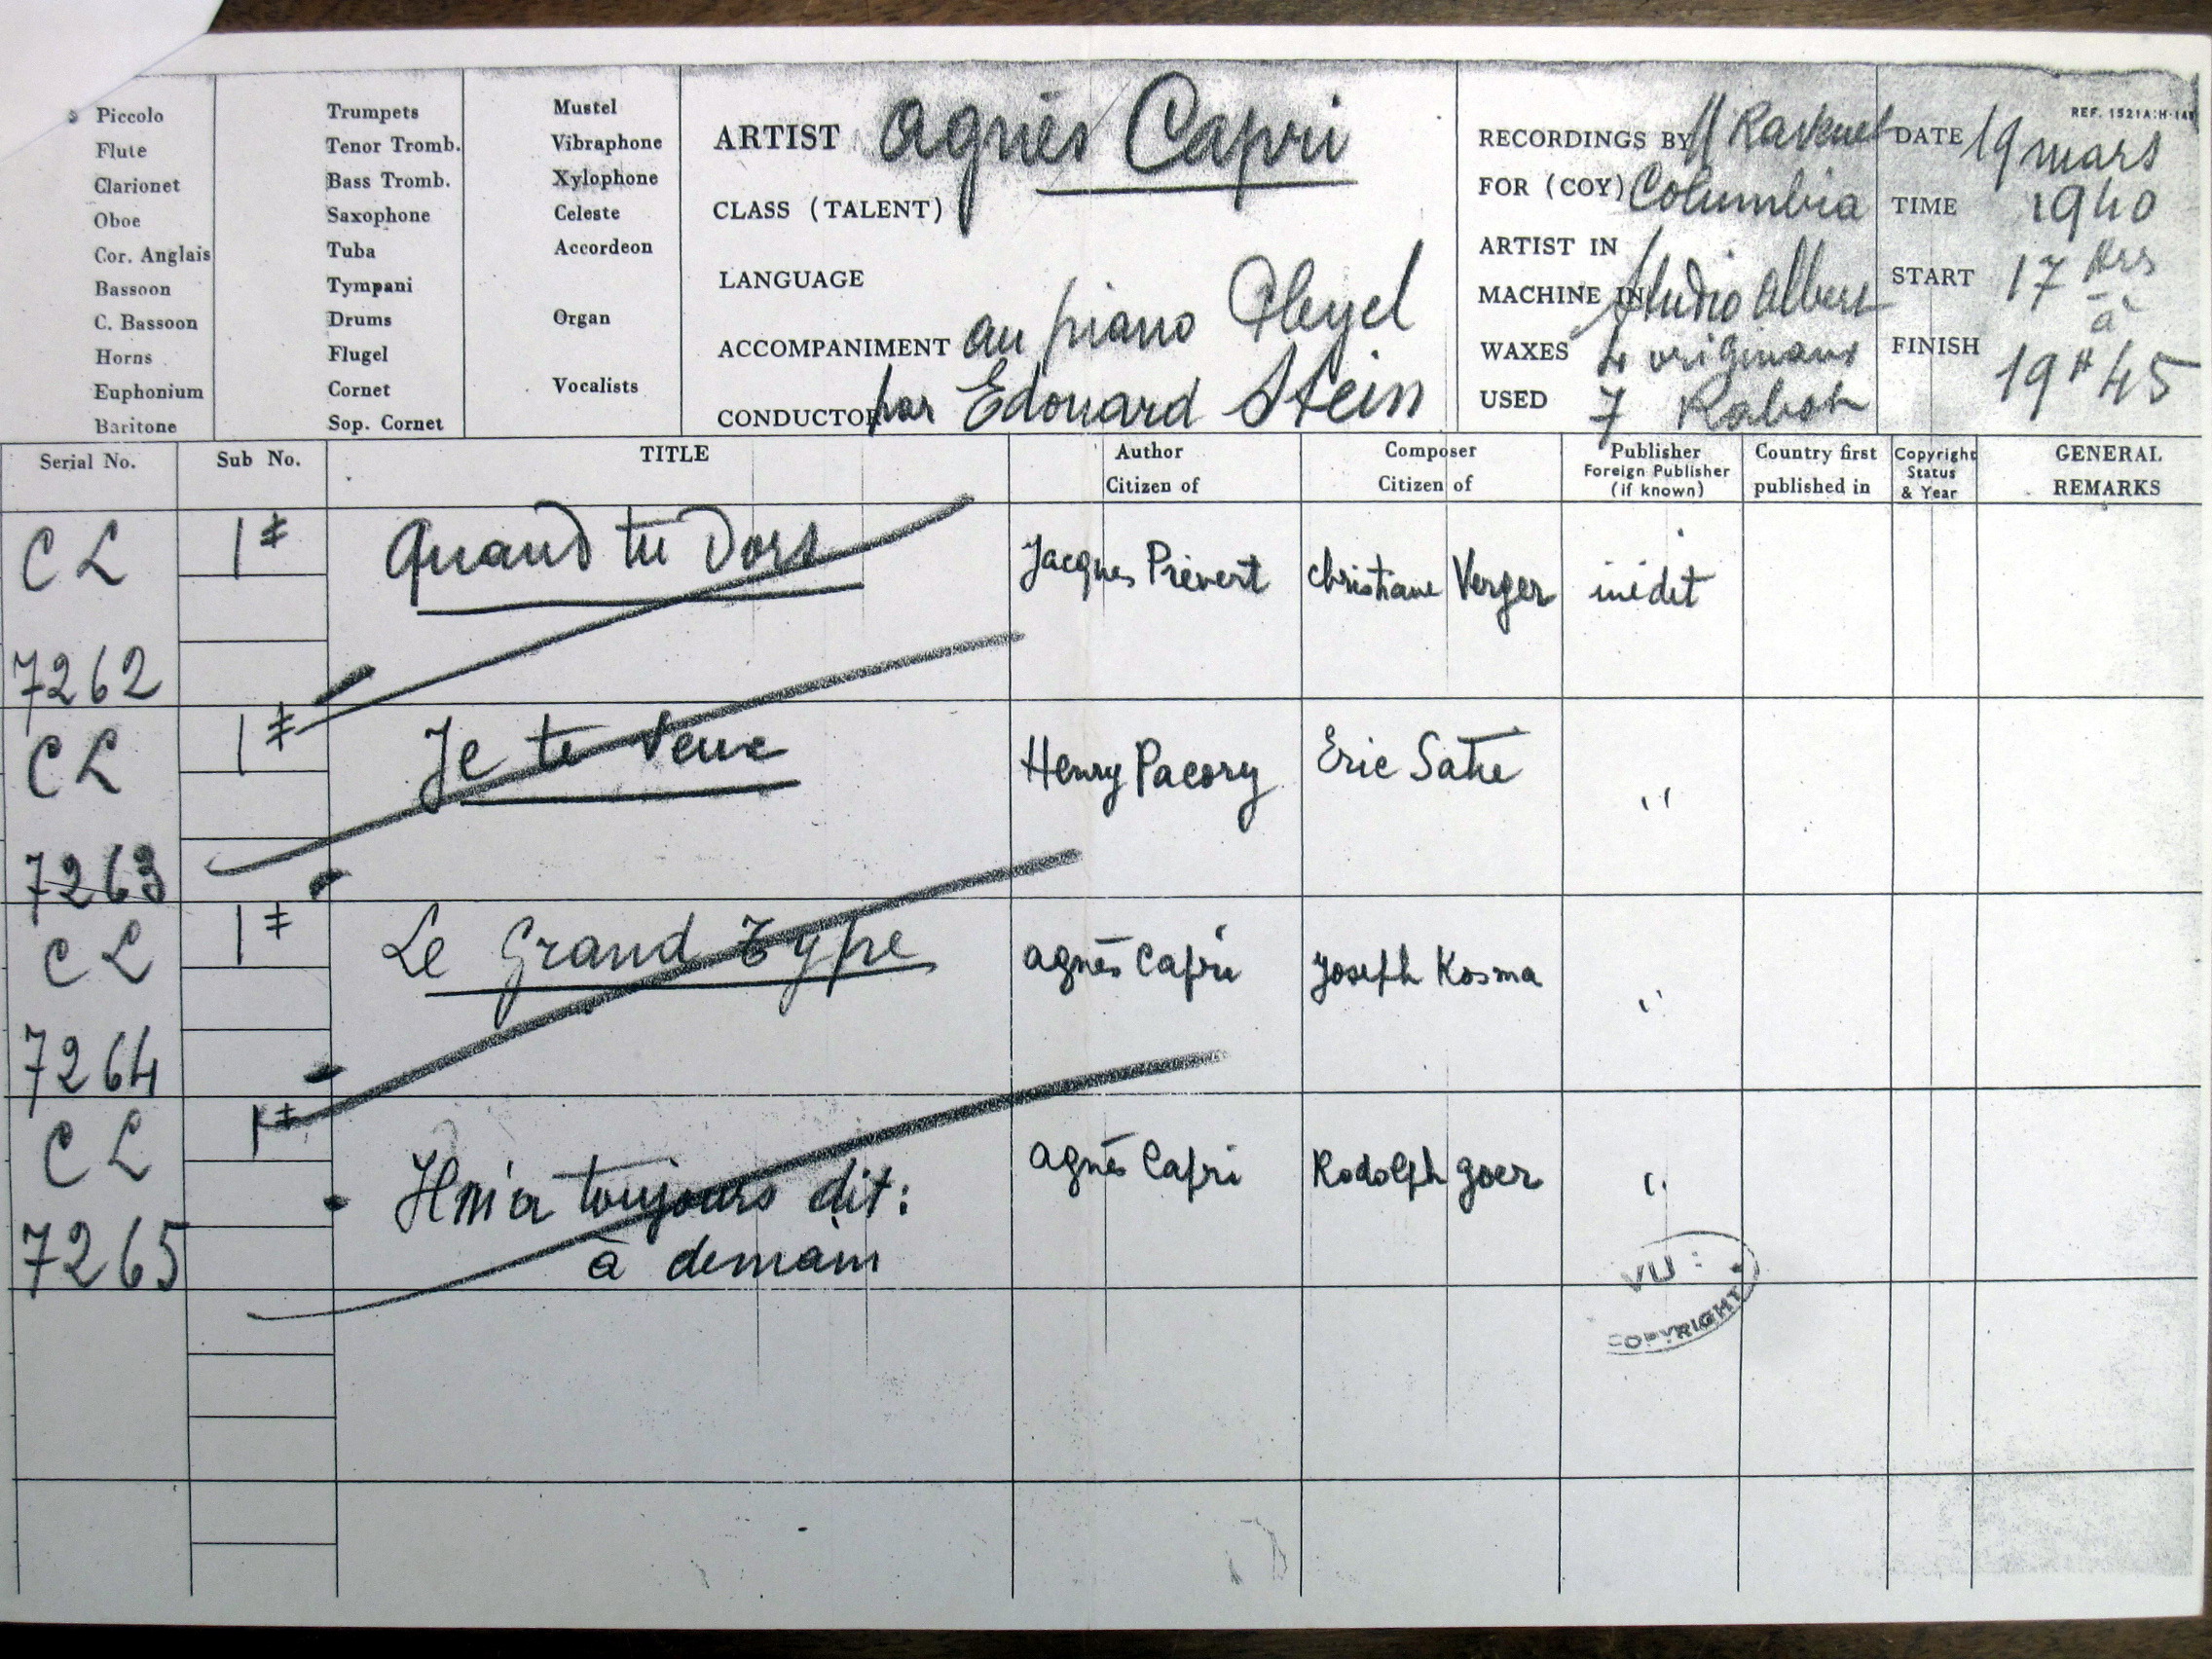 Piccolo
Flute
Clarionet
Oboe
Cor. Anglais
Bassoon
C. Bassoon
Horns
Euphonium
Baritone
Trumpets
Tenor Tromb.
Bass Tromb.
Saxophone
Tuba
Tympani
Drums
Flugel
Cornet
Sop. Cornet
Mustel
Vibraphone
Xylophone
Celeste
Accordeon
Organ
Vocalists
ARTIST agnès Capri
CLASS (TALENT)
LANGUAGE
ACCOMPANIMENT au piano Pleyel
CONDUCTOR par Edouard Stein
RECORDINGS BY
FOR (COY) Columbia
ARTIST IN
MACHINE IN Studio Albert
WAXES 4 originaux
USED 7 Rabot
REF. 1521A:H-14
DATE 19 mars
TIME 1940
START 17 hrs
à
FINISH 19H45
Serial No. Sub No. TITLE Author Citizen of Composer Citizen of Publisher Foreign Publisher (if known) Country first published in Copyright Status & Year GENERAL REMARKS
CL 7262 1 Quand tu Dors Jacques Prévert christiane Verger inédit
CL 7263 1 Je te Veux Henry Pacory Eric Satie "
CL 7264 1 Le Grand Type agnès Capri Joseph Kosma "
CL 7265 1 Il m'a toujours dit: à demain agnès Capri Rodolph goer "
VU :
COPYRIGHT